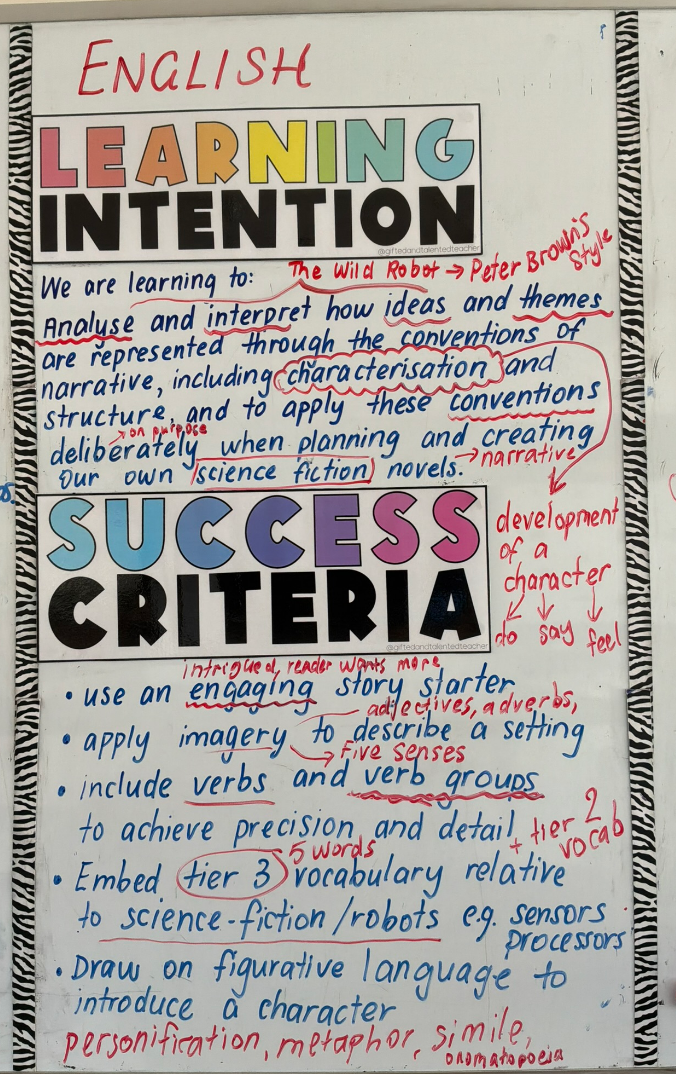 ENGLISH
LEARNING
INTENTION
@giftedandtalentedteacher
We are learning to:
The Wild Robot → Peter Brown's
Style
Analyse and interpret how ideas and themes
are represented through the conventions of
narrative, including characterisation and
structure, and to apply these conventions
→ on purpose
deliberately when planning and creating
→ narrative
our own science fiction novels.
development
of a
character
do say feel
SUCCESS
CRITERIA
@giftedandtalentedteacher
intrigued, reader wants more
• use an engaging story starter
adjectives, adverbs,
• apply imagery to describe a setting
→ Five senses
• include verbs and verb groups
to achieve precision and detail
+ tier 2
vocab
5 words
• Embed tier 3 vocabulary relative
to science-fiction/robots e.g. sensors
processors
• Draw on figurative language to
introduce a character
personification, metaphor, simile,
onomatopoeia